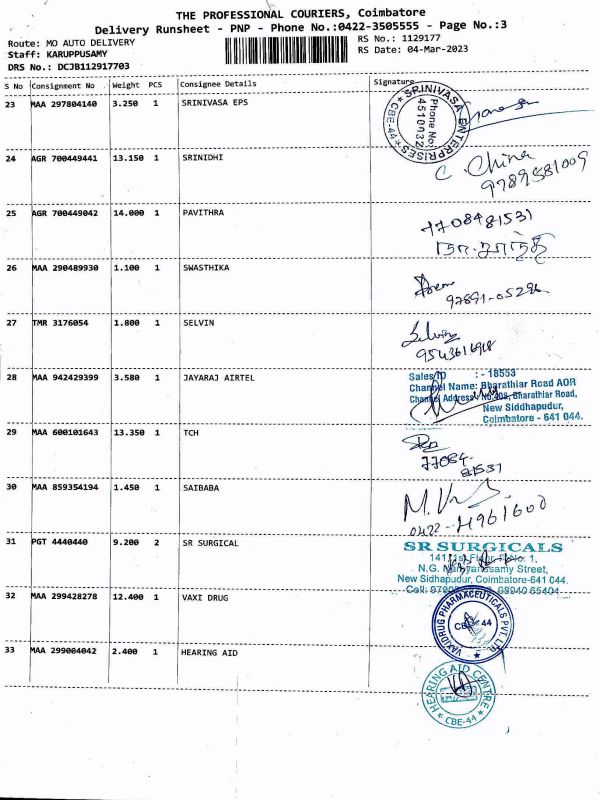 THE PROFESSIONAL COURIERS, Coimbatore
Delivery Runsheet - PNP - Phone No.:0422-3505555 - Page No.:3
Route: MO AUTO DELIVERY
RS No.: 1129177
Staff: KARUPPUSAMY
RS Date: 04-Mar-2023
DRS No.: DCJB112917703
S No Consignment No Weight PCS Consignee Details Signature
23 MAA 297804140 3.250 1 SRINIVASA EPS
SRINIVASA ENTERPRISES
Phone No.
4510032
CBE-44
24 AGR 700449441 13.150 1 SRINIDHI
C. China
9789581009
25 AGR 700449042 14.000 1 PAVITHRA
7708481531
26 MAA 290489930 1.100 1 SWASTHIKA
97891-05296
27 TMR 3176054 1.800 1 SELVIN
Selvin
9543616918
28 MAA 942429399 3.580 1 JAYARAJ AIRTEL
Sales ID :- 18553
Channel Name: Bharathiar Road AOR
Channel Address: No.408, Bharathiar Road,
New Siddhapudur,
Coimbatore - 641 044.
29 MAA 600101643 13.350 1 TCH
77084-
81531
30 MAA 859354194 1.450 1 SAIBABA
0422-4961600
31 PGT 4440440 9.200 2 SR SURGICAL
SR SURGICALS
N.G. Narayanasamy Street,
New Sidhapudur, Coimbatore-641 044.
32 MAA 299428278 12.400 1 VAXI DRUG
VAXIDRUG PHARMACEUTICALS PVT. LTD.
CBE - 44
33 MAA 299004042 2.400 1 HEARING AID
HEARING AID CENTRE
CBE-44